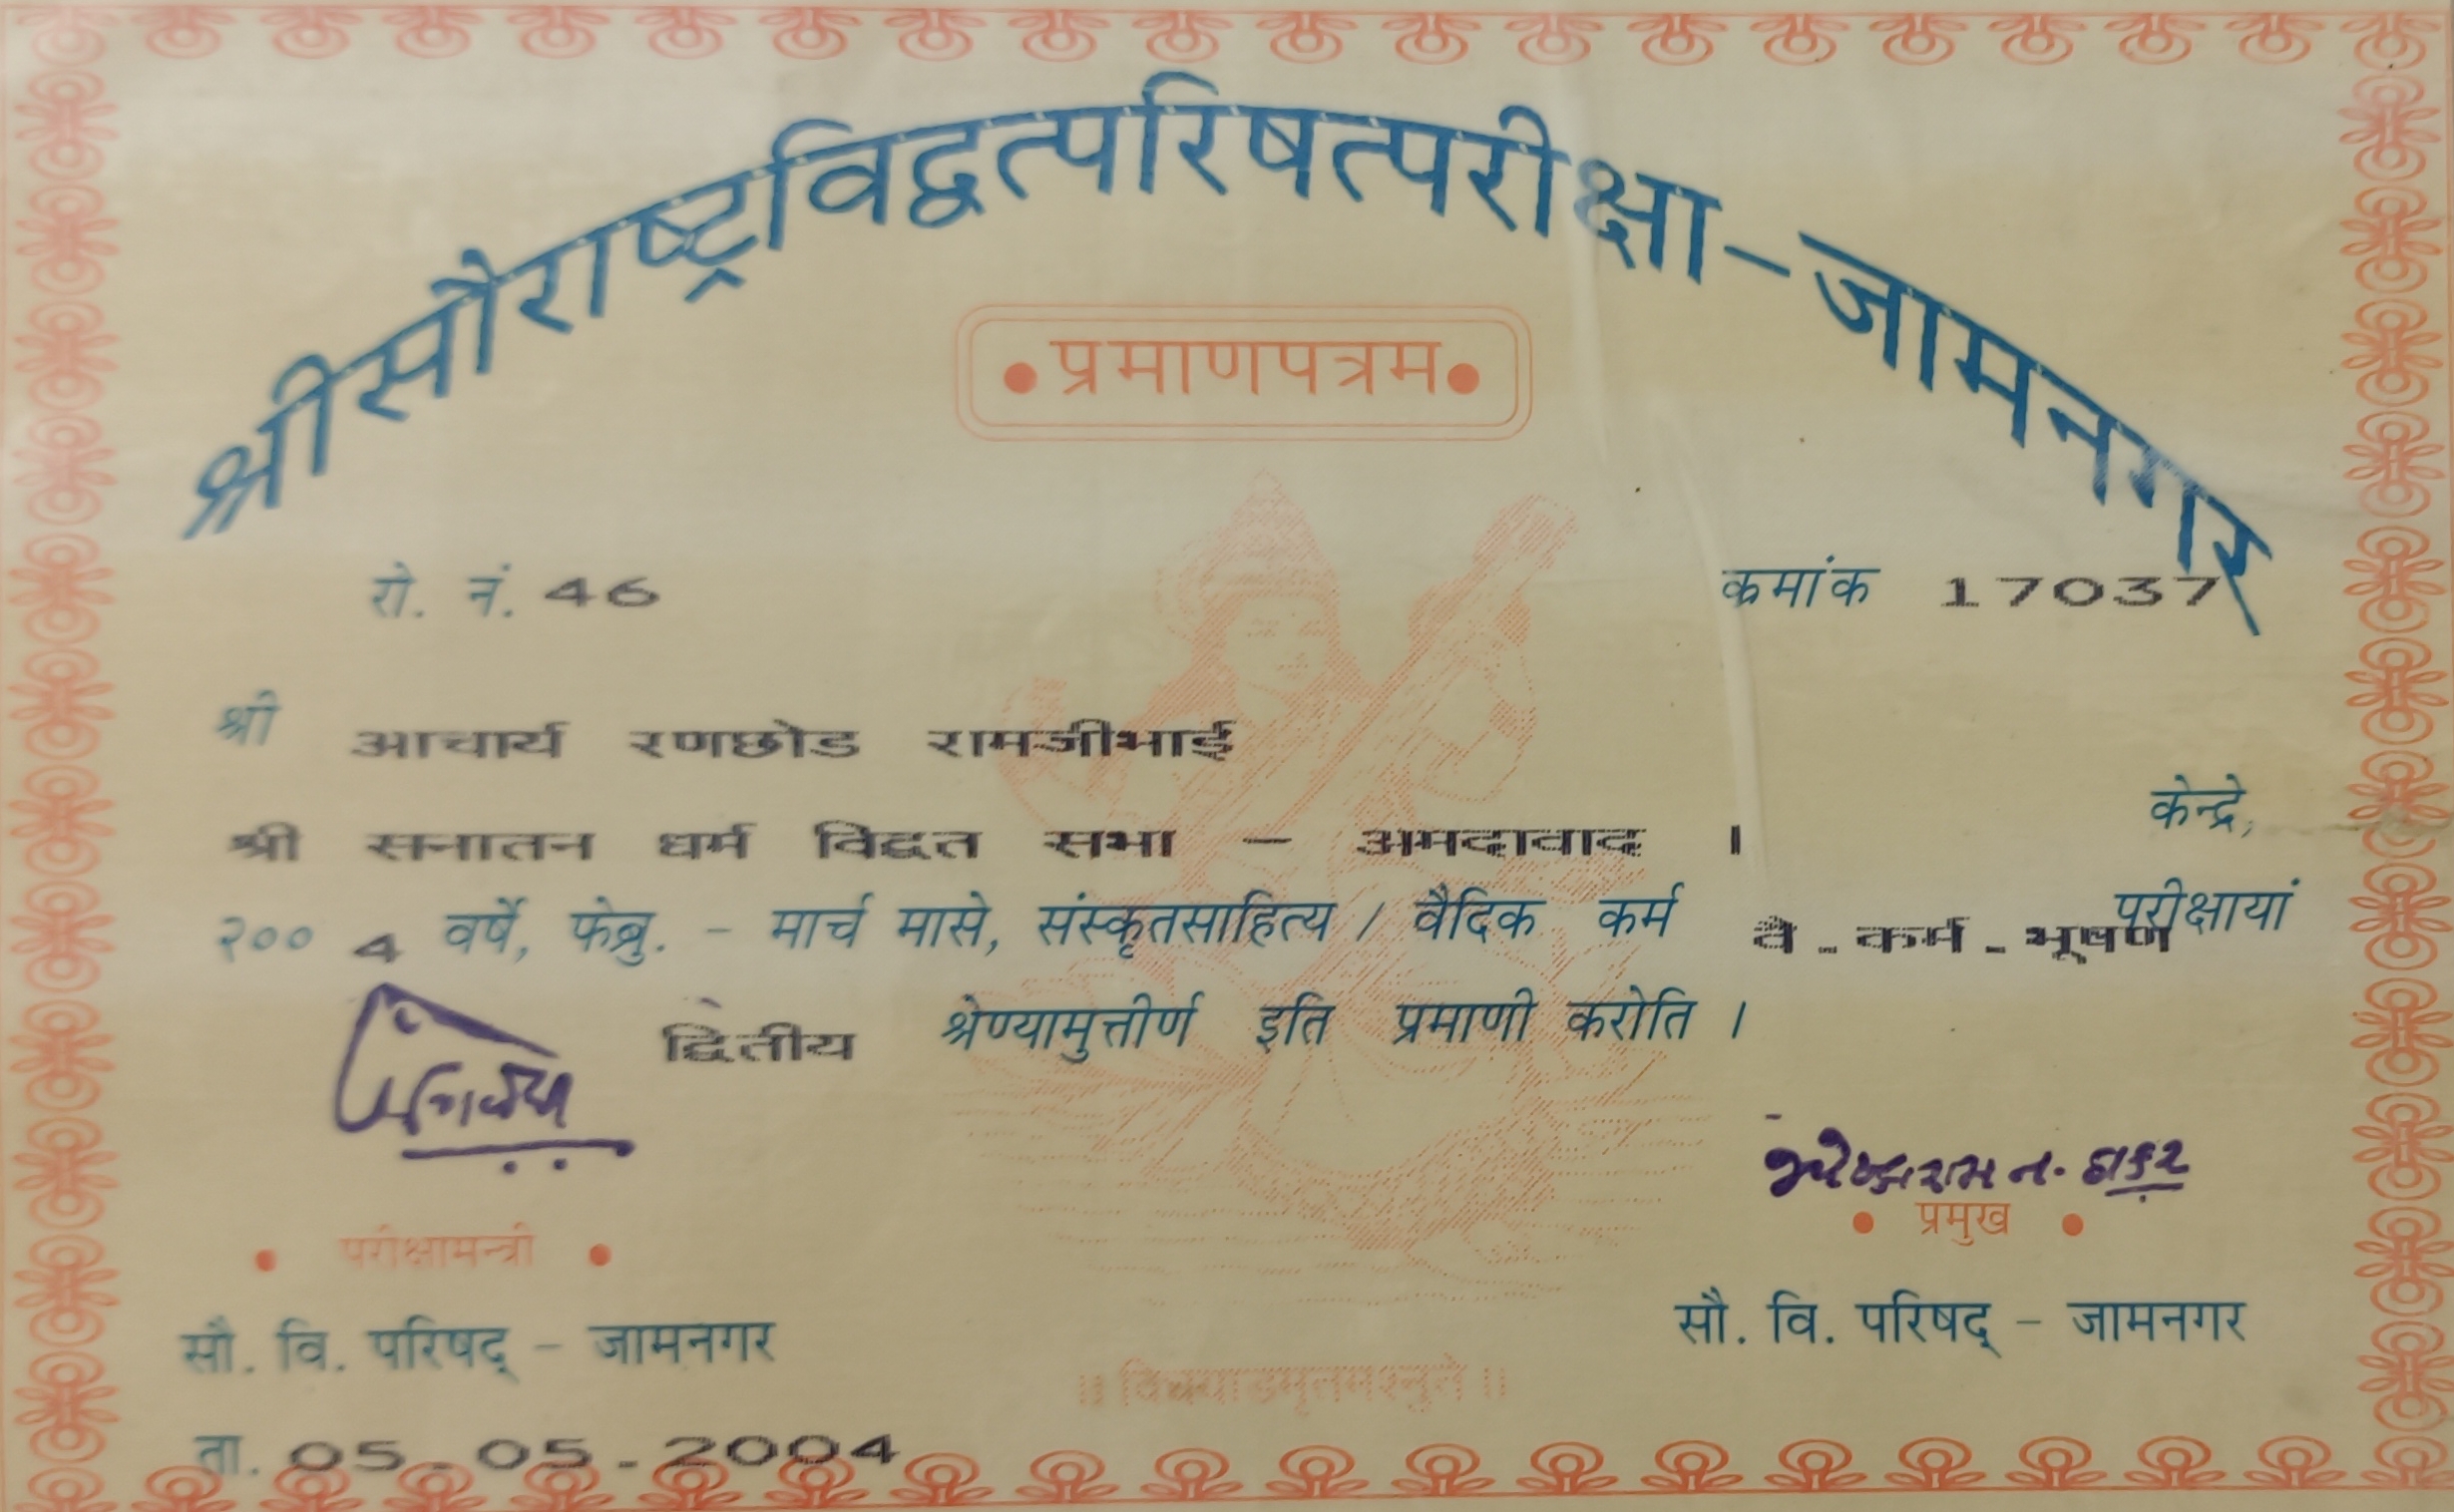 श्रीसौराष्ट्रविद्वत्परिषत्परीक्षा-जामनगर
प्रमाणपत्रम
रो. नं. 46 क्रमांक 17037
श्री आचार्य रणछोड रामजीभाई
श्री सनातन धर्म विद्वत सभा - अमदावाद । केन्द्रे,
२०० 4 वर्षे, फेब्रु. - मार्च मासे, संस्कृतसाहित्य / वैदिक कर्म वै-कर्म-भूषण परीक्षायां
द्वितीय श्रेण्यामुत्तीर्ण इति प्रमाणी करोति ।
न. ठाकर
परीक्षामन्त्री प्रमुख
सौ. वि. परिषद् - जामनगर सौ. वि. परिषद् - जामनगर
॥ विद्ययाऽमृतमश्नुते ॥
ता. 05-05-2004